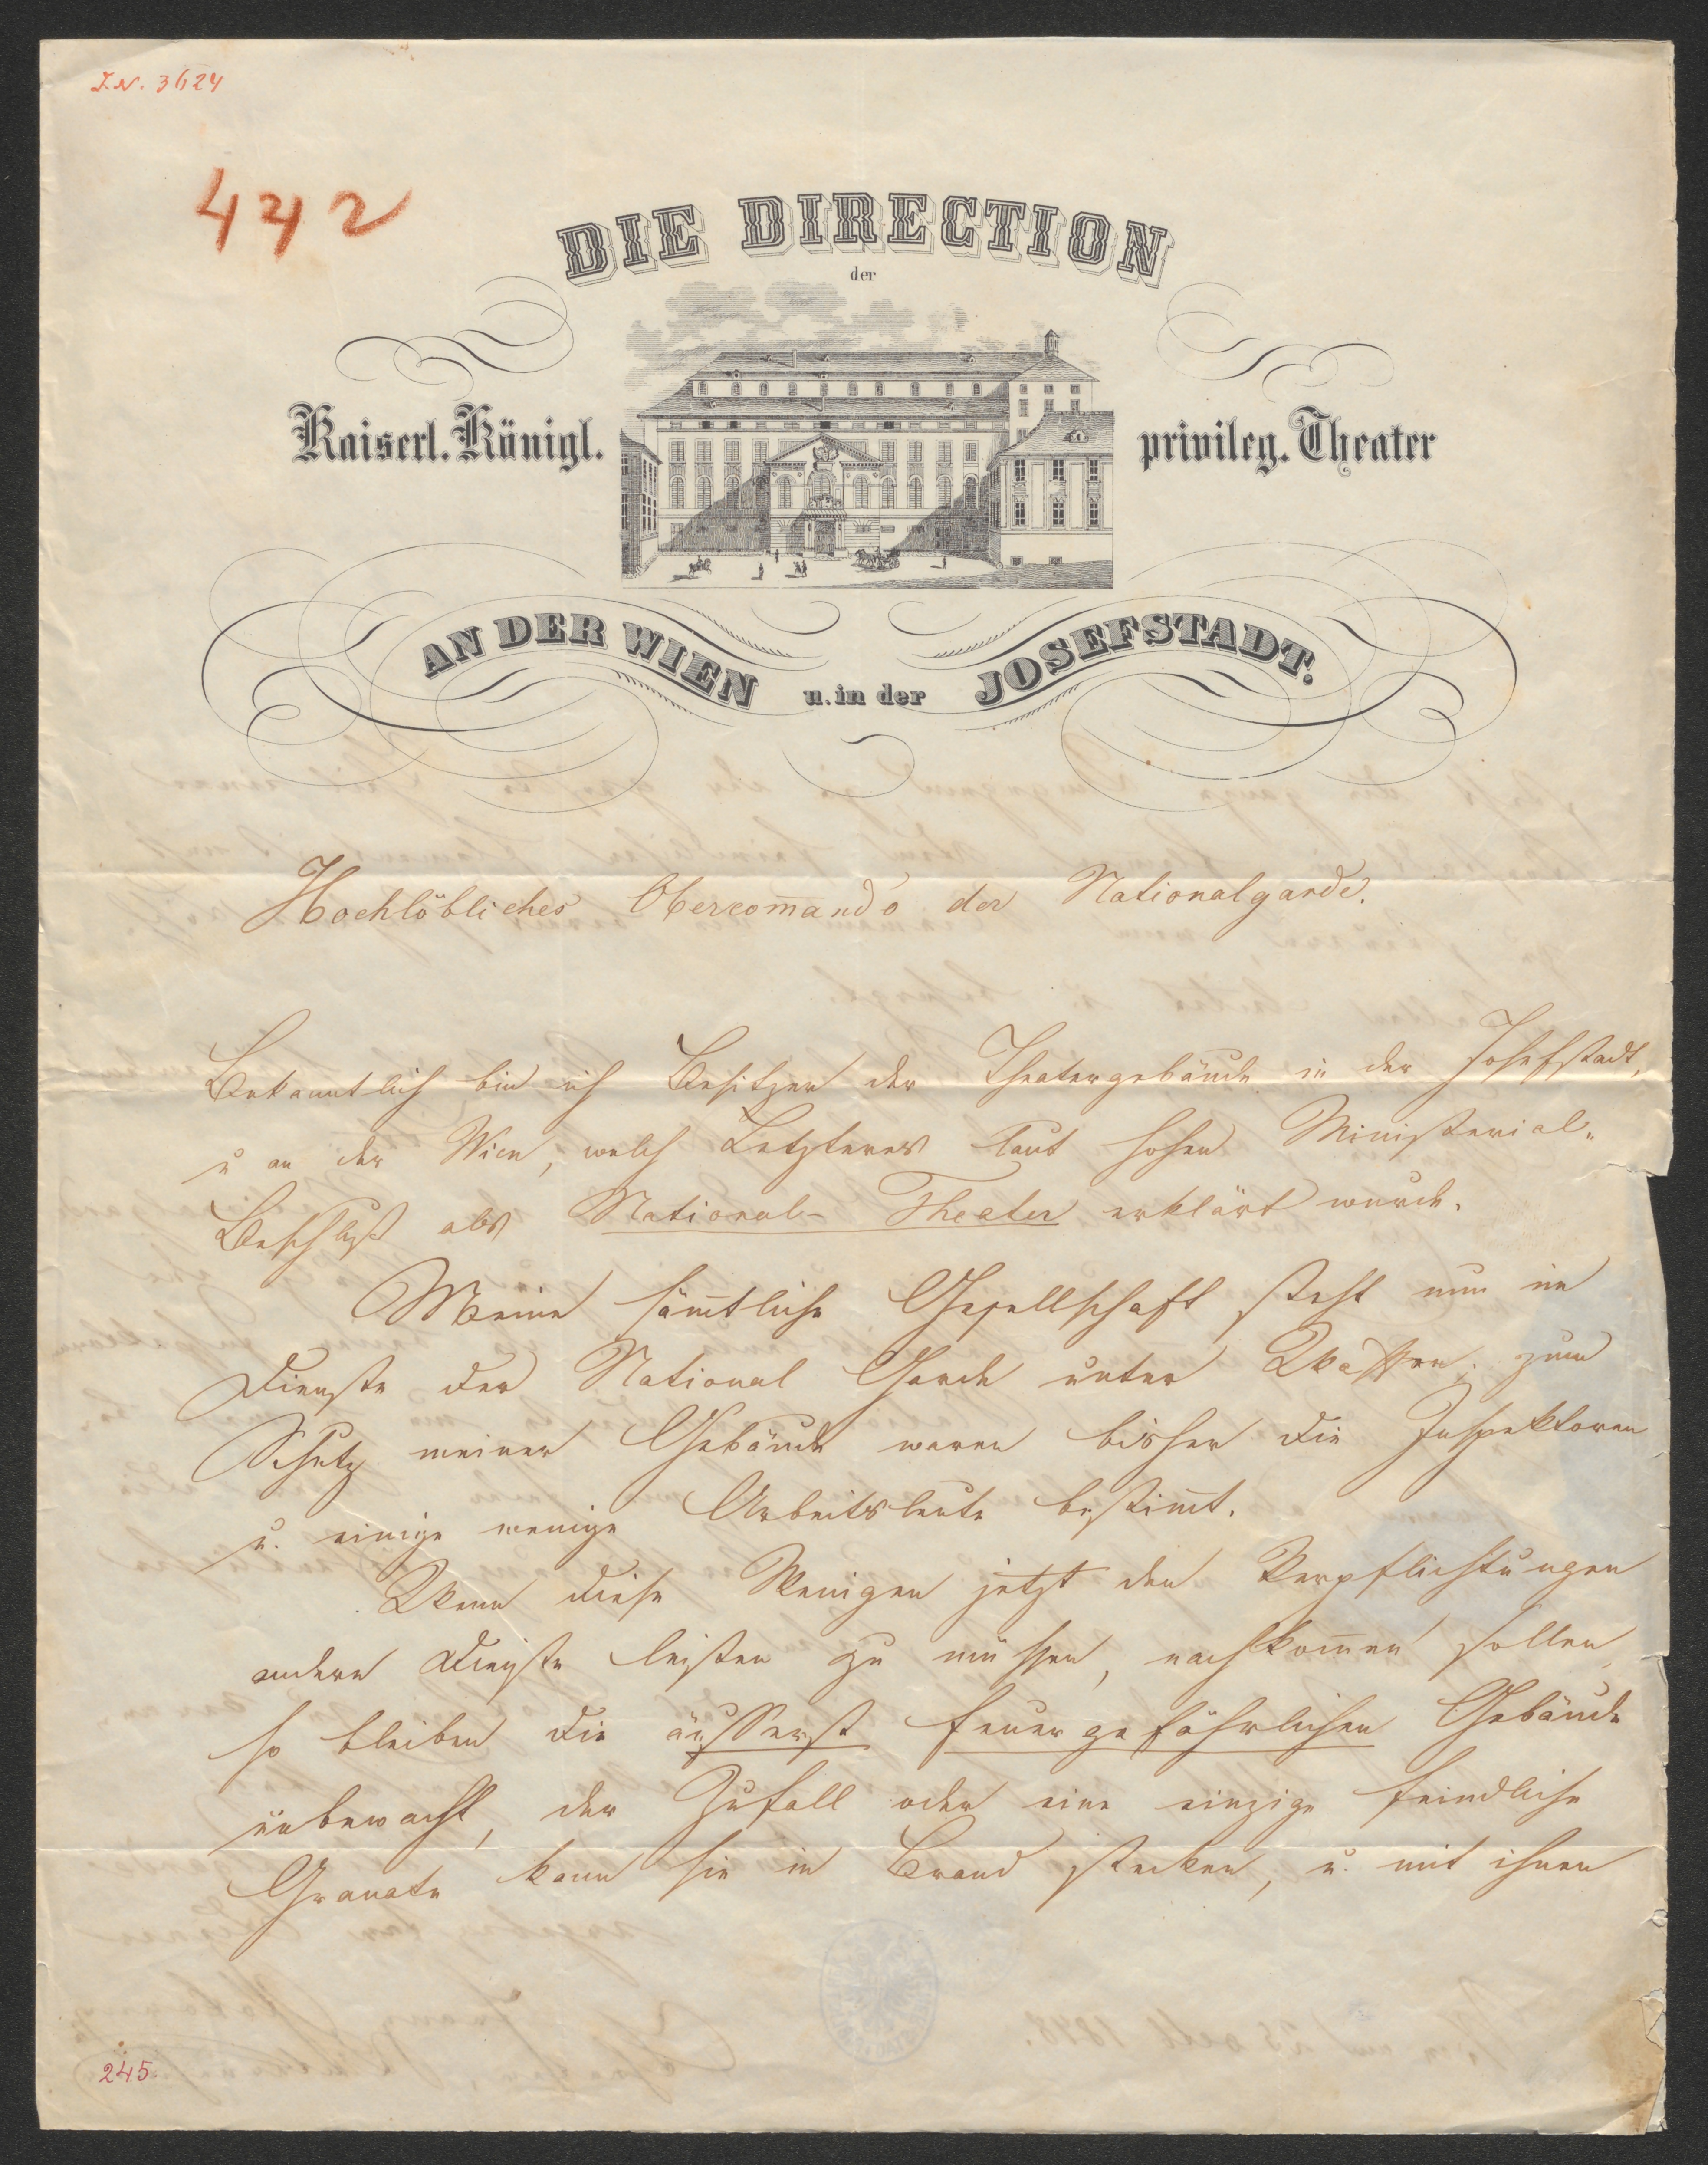 I.N. 3624
442
DIE DIRECTION
der
Kaiserl. Königl. privileg. Theater
AN DER WIEN u. in der JOSEFSTADT.
Hochlöbliches Obercom̄ando der Nationalgarde.
Bekanntlich bin ich Besitzer der Theatergebäude in der Josefstadt,
u an der Wien, welch Letzteres laut hohen Ministerial-
Beschluß als National-Theater erklärt wurde.
Meine säm̄tliche Gesellschaft steht nun im
Dienste der National Garde unter Waffen. zum
Schutz meiner Gebäude waren bisher die Inspektoren
u. einige wenige Arbeitsleute bestim̄t.
Wenn diese Wenigen jetzt den Verpflichtungen
andere Dienste leisten zu müssen, nachkom̄en sollen,
so bleiben die äusserst feuergefährlichen Gebäude
unbewacht, der Zufall oder eine einzige feindliche
Granate kann sie in Brand stecken, u. mit ihnen
245